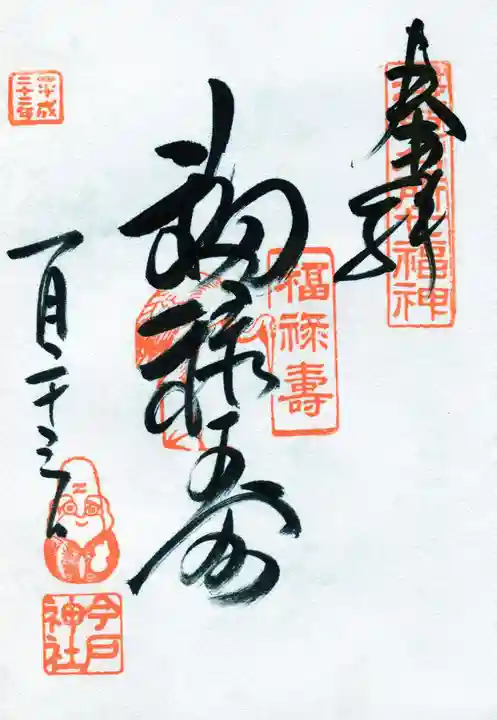 奉拝
浅草名所七福神
福禄寿
福禄壽
平成
二十二年
一月二十三日
今戸
神社